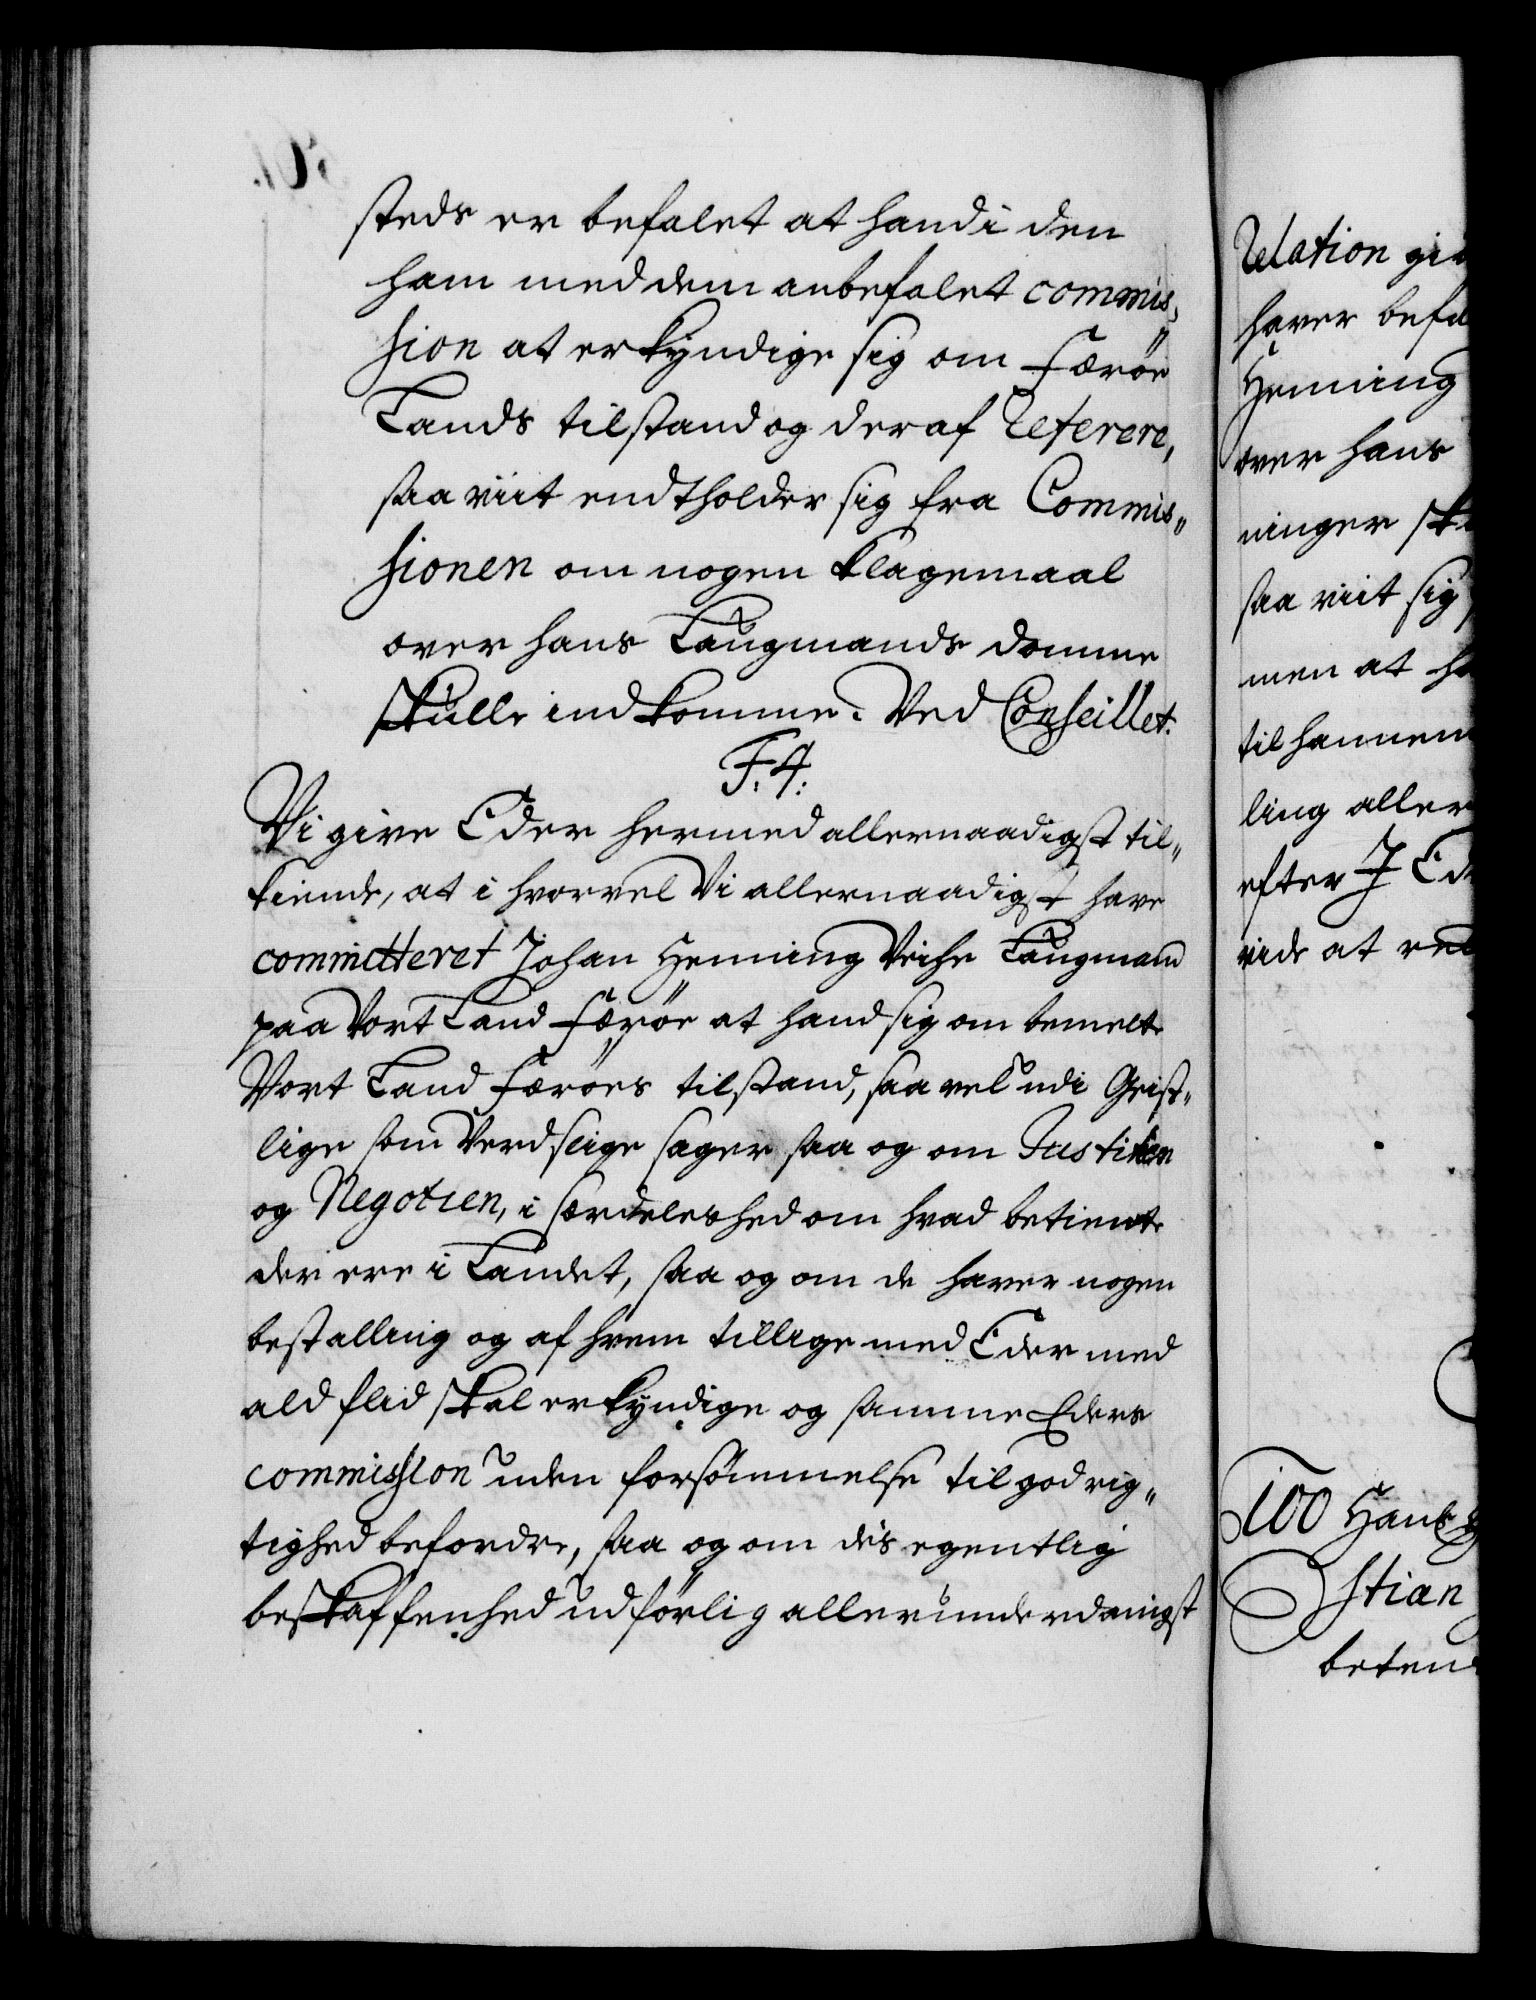 steds er befalet at hand i den
ham med dem anbefalet commis„
sion at erkyndige sig om Færöe
Lands tilstand og deraf Referere,
saa viit endtholder sig fra Commis„
sionen om nogen Klagemaal
over hans Laugmands Domme
skulle indkomme. Ved Conseillet.
F. 4.
Vi give Eder hermed allernaadigst til„
kiende, at i hvorvel Vi allernaadigst have
committeret Johan Henning Veihe Laugmand
paa Vort Land Færöe at hand sig om bemelte
Vort Land Færöes tilstand, saa vel udi Geist„
lige som Verdslige sager saa og om Justitien
og Negotien, i særdeleshed om hvad betiente
der ere i Landet, saa og om de haver nogen
bestalling og af hvem tillige med Eder med
ald flid skal erkyndige og samme Eders
commission uden forsömmelse til god rig„
tighed befordre, saa og om dis egentlig
beskaffenhed udförlig allerunderdanigst
Relation gi
haver befa
Henning
over hans
ninger sk
saa viit sig
men at ha
til hannem
ling aller
efter I Ed
vide at re
100 Hans
Stian
beten